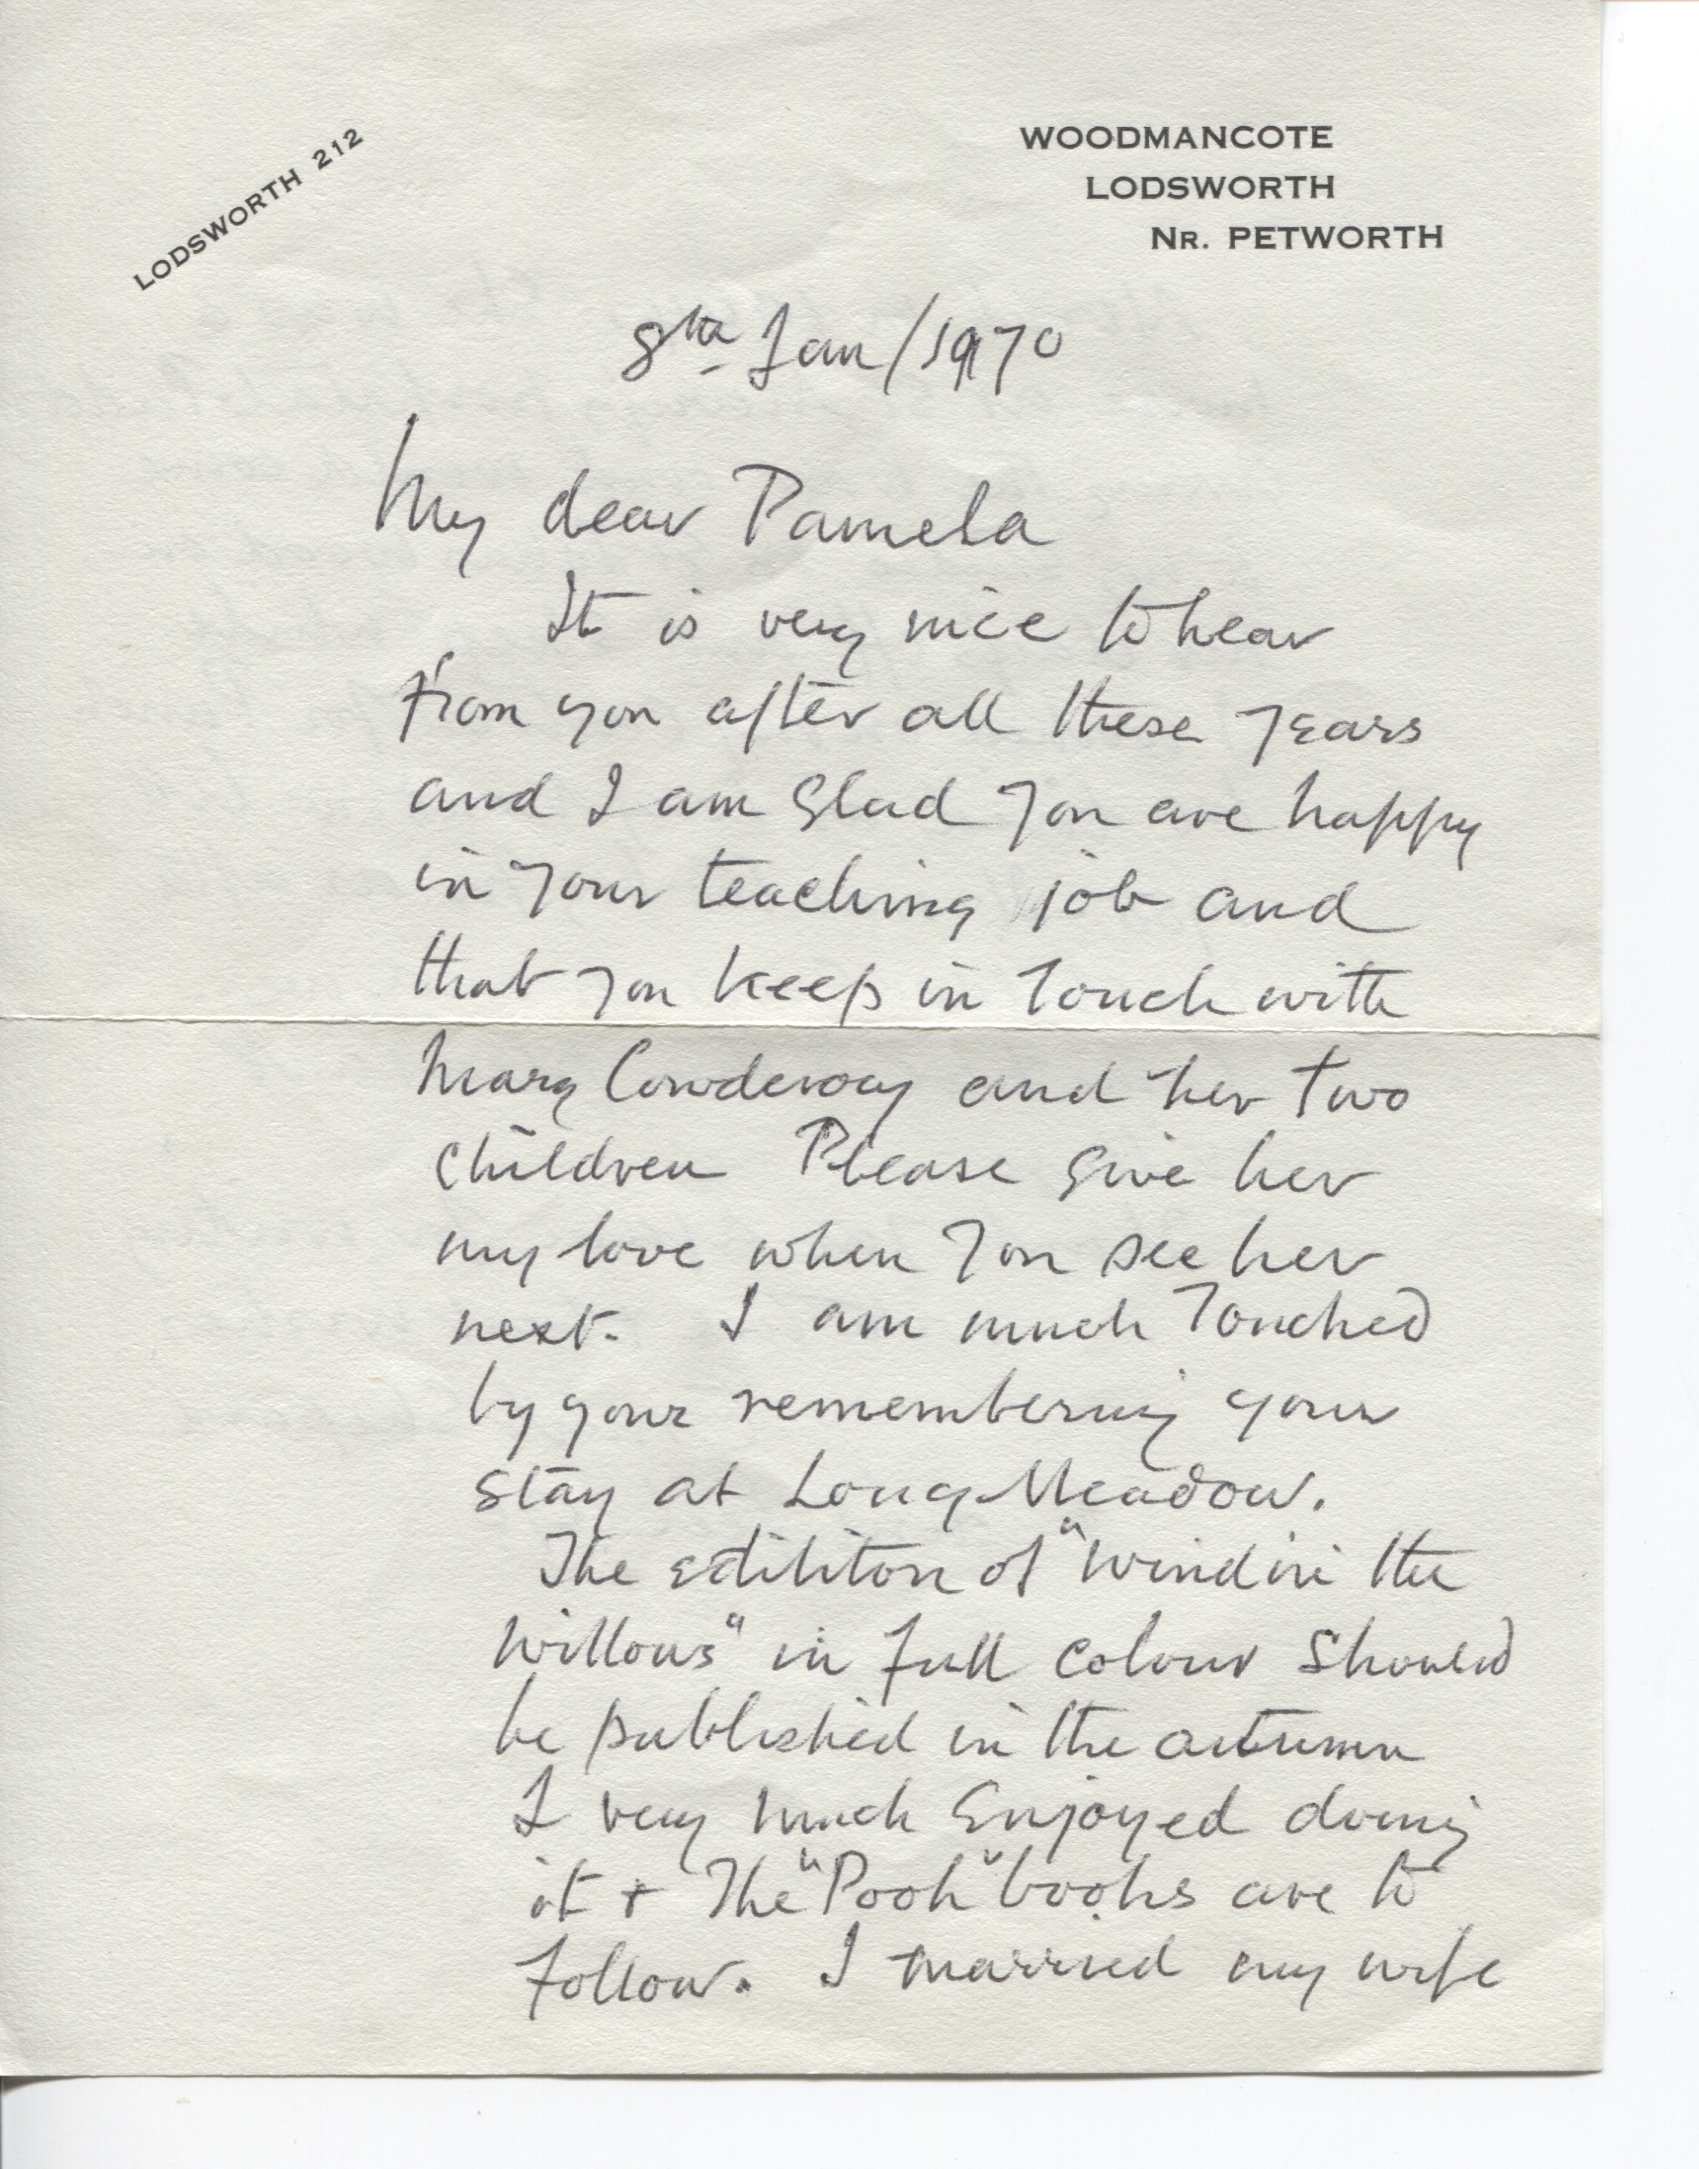 LODSWORTH 212
WOODMANCOTE
LODSWORTH
NR. PETWORTH
8th Jan/1970
My dear Pamela
It is very nice to hear
from you after all these years
and I am glad you are happy
in your teaching job and
that you keep in touch with
Mary Cowderoy and her two
children Please give her
my love when you see her
next. I am much touched
by your remembering your
stay at Long Meadow.
The edititon of "Wind in the
Willows" in full colour should
be published in the autumn
I very much enjoyed doing
it + The "Pooh" books are to
follow. I married my wife